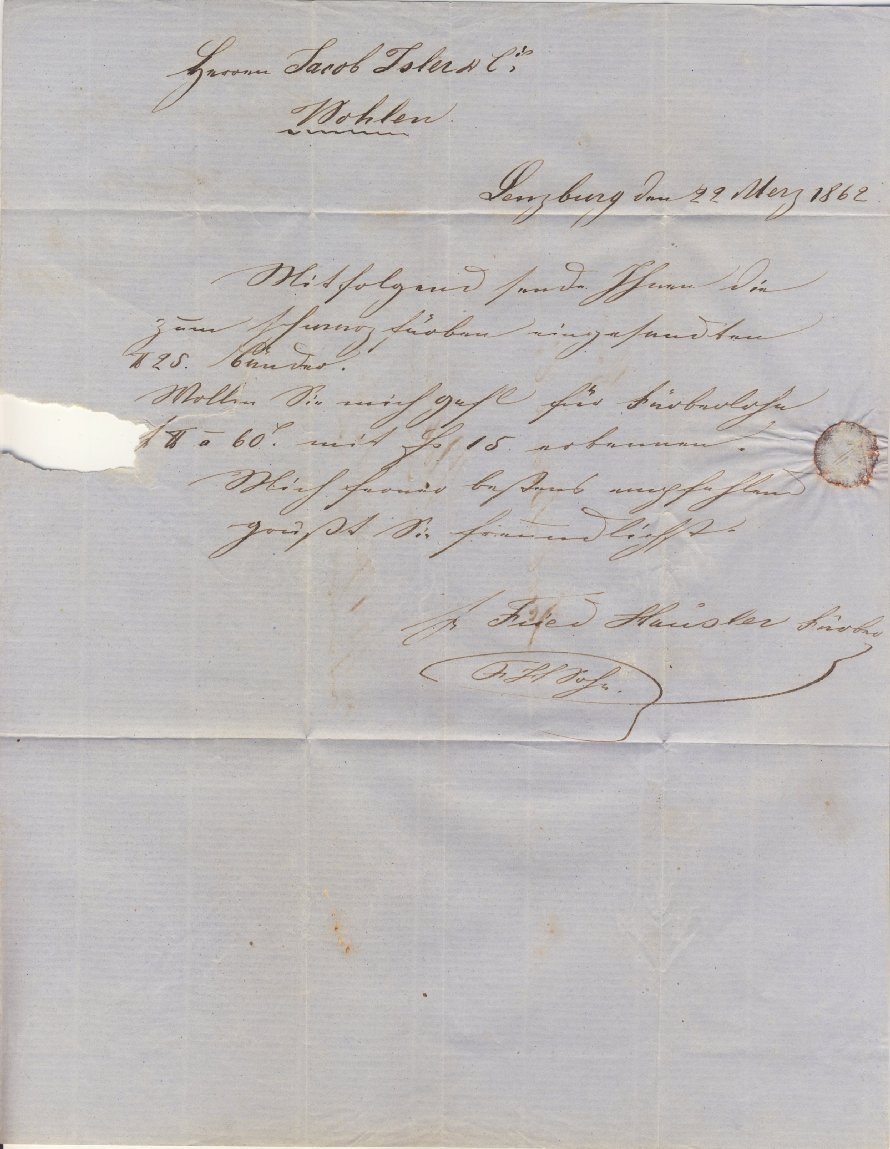 Herren Jacob Isler & Cie
Wohlen.
Lenzburg den 22 Merz 1862.
Mitfolgend sende Ihnen die
zum schwarz färben eingesandten
℔ 25. Bänder.
Wollen Sie mich gefl für Färberlohn
℔ a 60 c. mit fr 15. erkennen.
Mich ferner bestens empfehlend
grüßt Sie freundlichst
Fried Häusler Färber
F. H. Sohn.